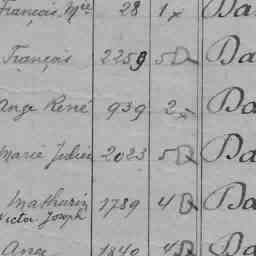 François, Mie 28 1 x Da
François 2259 5 D Da
Ange René 939 2 x Da
Marie Julien 2023 5 D Da
Mathurin 1789 4 D Da
Victor Joseph
Ange 1840 4 D Da